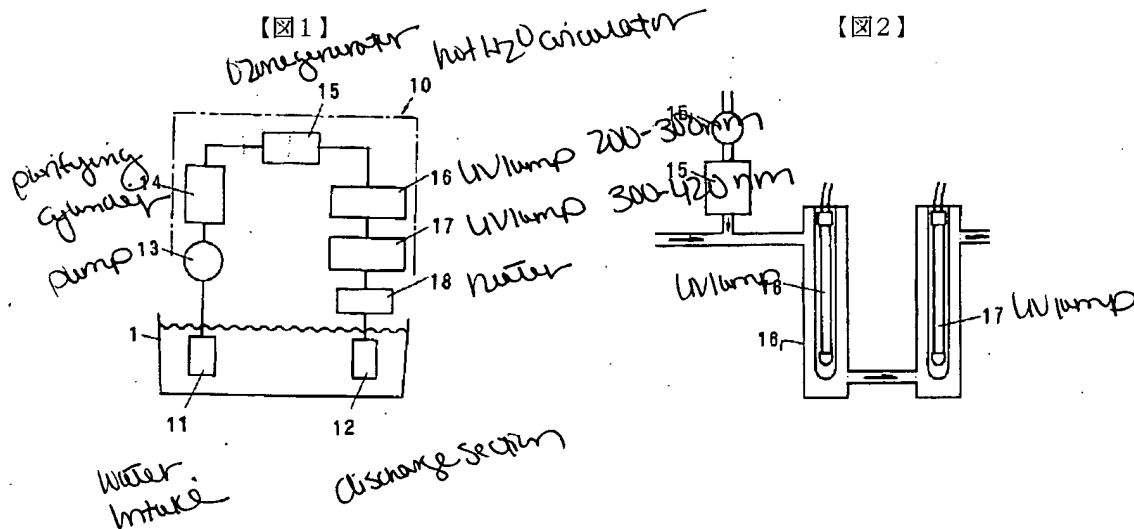 【図1】
【図2】
Ozonegenerator
hot H2O circulator
15
10
purifying
cylinder
14
16 UV lamp 200-300nm
17 UV lamp 300-420nm
pump
13
18 heater
1
11
12
Water
intake
discharge section
15
UV lamp
16
17 UV lamp